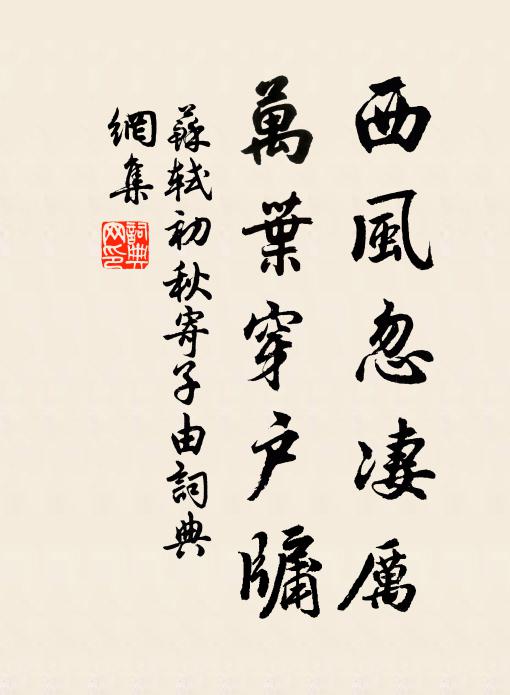 西風忽凄厲
萬葉穿户牗
蘇軾初秋寄子由詞典
網集
詞典
网印